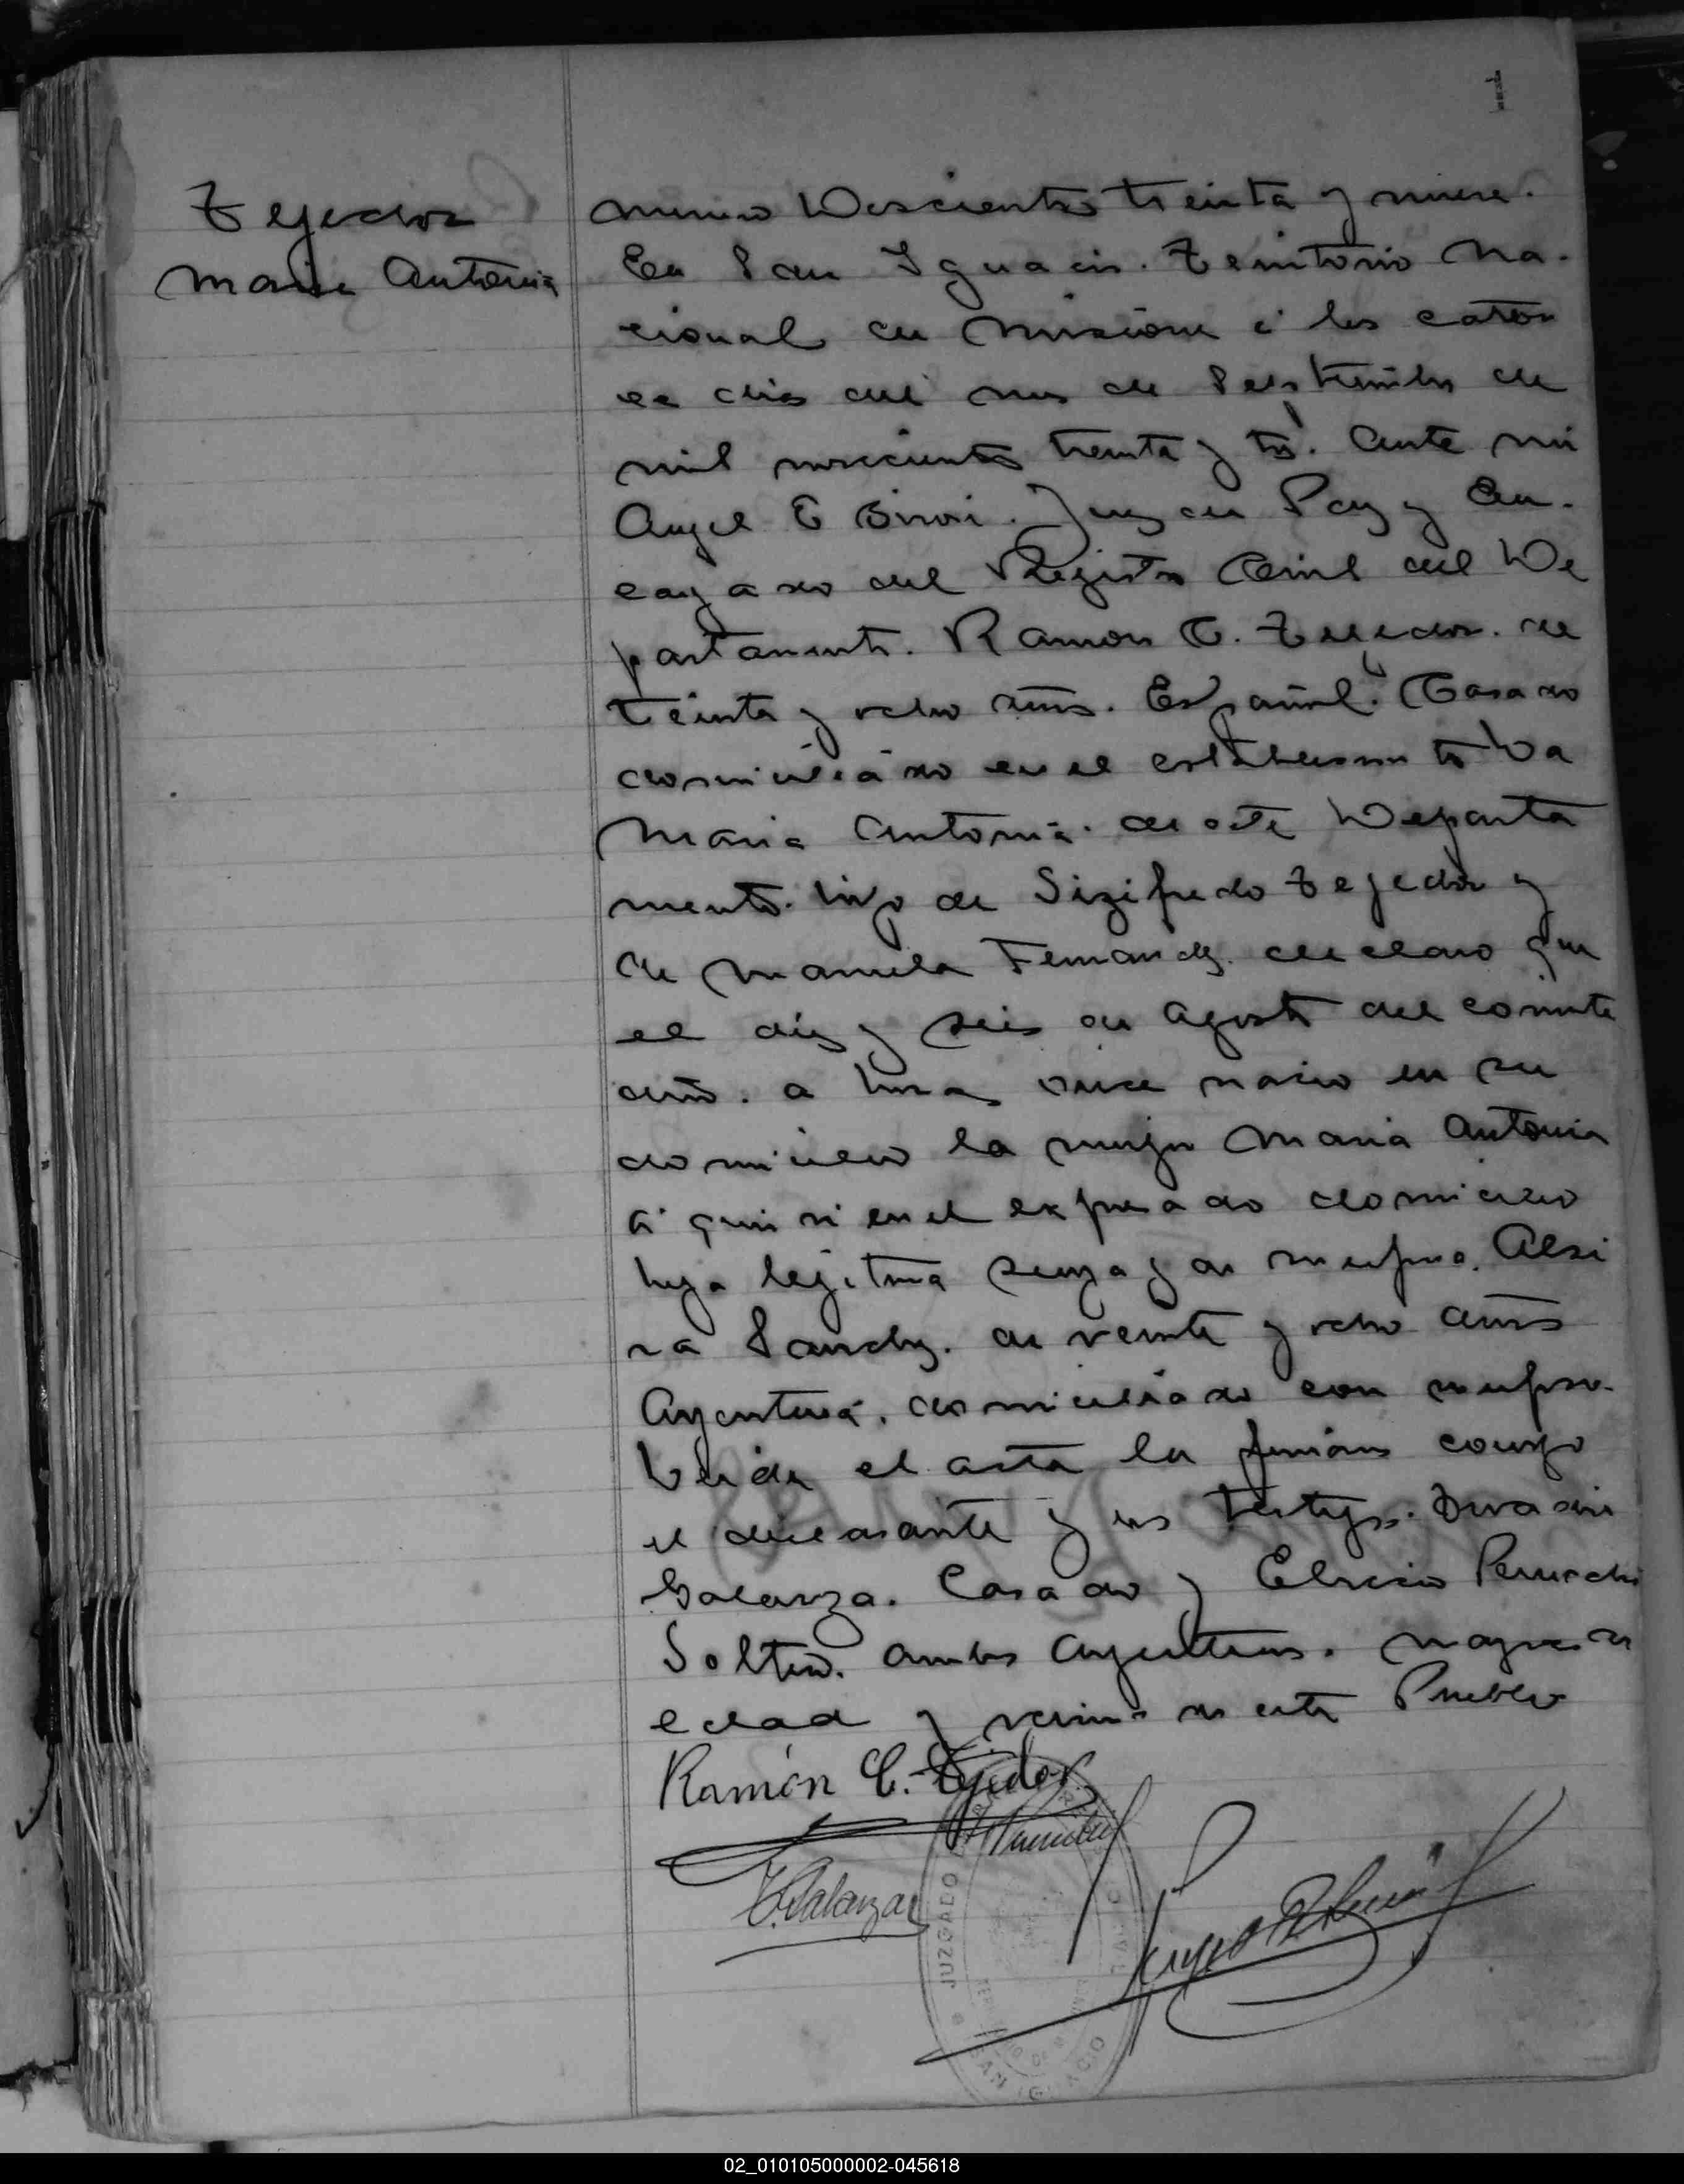 1
Tejedor
Maria Antonia
Numero Doscientos treinta y nueve.
En San Ignacio. Territorio Na-
cional de Misiones á los cator
ce dias del mes de Septiembre de
mil novecientos treinta y tres. Ante mi
Angel E Juez de Paz y En-
cargado del Registro Civil del De
partamento. Ramon C. Tejedor. de
treinta y ocho años. Español. Casado
domiciliado en el establecimiento
Maria Antonia. de este Departa
mento. hijo de Sigifredo Tejedor y
de Manuela Fernandez. declaro que
el diez y seis de Agosto del corriente
año. a horas once nacio en su
domicilio la mujer Maria Antonia
á quien vi en el expresado domicilio
hija legitima suya y de su esposa. Alsi
ra Sanchez. de veinte y ocho años
Argentina. domiciliado con su esposo.
Leida el acta la firman conmigo
el declarante y los testigos.
Galarza. Casado y Peruchi
Soltero. ambos Argentinos. mayores de
edad y vecinos de este Pueblo
Ramón C. Tejedor
Galarza
JUZGADO
SAN IGNACIO
02_010105000002-045618